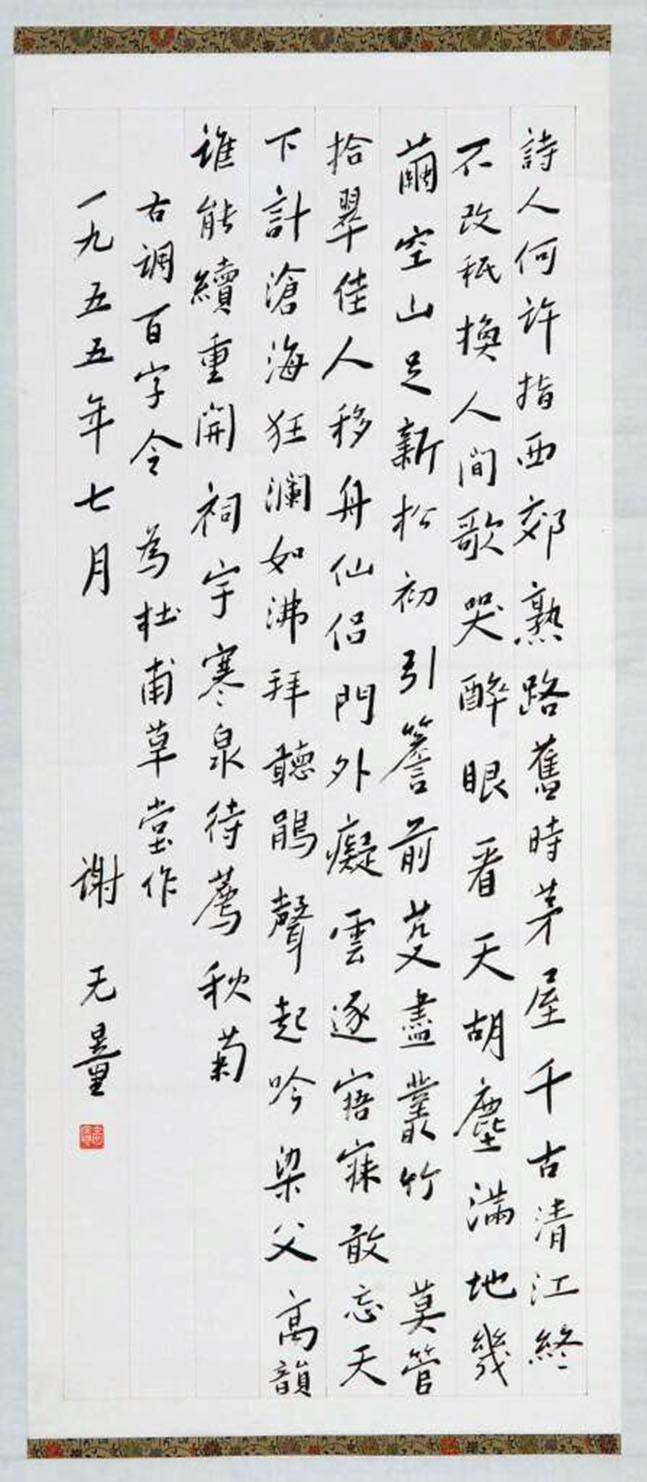 詩人何許指西郊熟路舊時茅屋千古清江終
不改秖換人間歌哭醉眼看天胡塵滿地幾
繭空山足新松初引簷前芟盡叢竹 莫管
拾翠佳人移舟仙侣門外癡雲逐寤寐敢忘天
下計滄海狂瀾如沸拜聽鵑聲起吟梁父高韻
誰能續重開祠宇寒泉待薦秋菊
古调百字令 為杜甫草堂作
一九五五年七月 谢无量